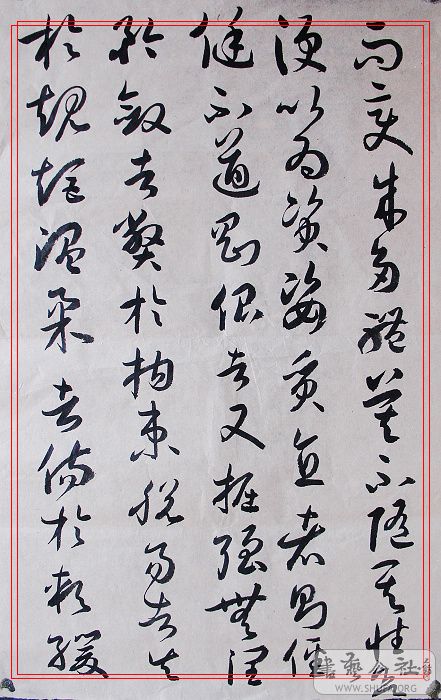 而變成多體莫不隨其性欲
便以為資姿質直者則徑
侹不遒剛佷者又掘強無潤
矜斂者弊於拘束脫易者失
於規矩溫柔者傷於軟緩
SHUFA.ORG